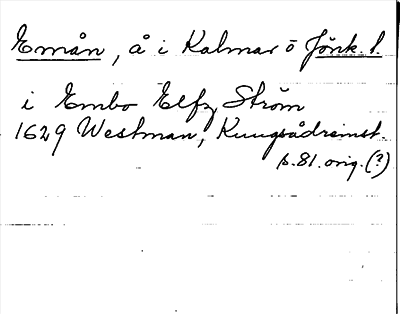 Emån, å i Kalmar o Jönk. l.
i Embo Elfz Ström
1629 Westman, Kungsådreinst.
s. 81. orig. (?)